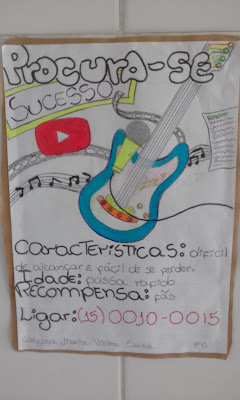 PROCURA-SE
SUCESSO
CARACTERÍSTICAS: difícil
de alcançar e fácil de se perder.
IDADE: passa rápido
RECOMPENSA: fãs
LIGAR: (15) 0010-0015